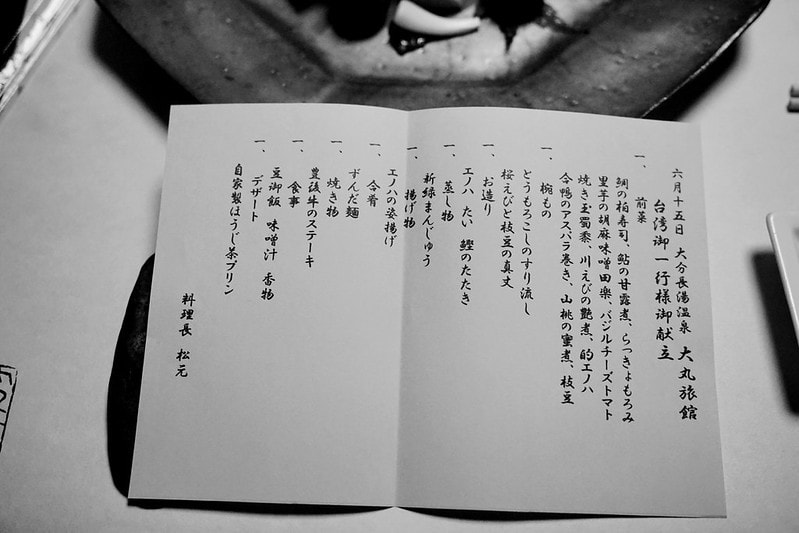 六月十五日 大分長湯温泉 大丸旅館
台湾御一行様御献立
一、前菜
鯛の柏寿司、鮎の甘露煮、らっきょもろみ
里芋の胡麻味噌田楽、バジルチーズトマト
焼き玉蜀黍、川えびの艶煮、的エノハ
合鴨のアスパラ巻き、山桃の蜜煮、枝豆
一、椀もの
とうもろこしのすり流し
桜えびと枝豆の真丈
一、お造り
エノハ たい 鰹のたたき
一、蒸し物
新緑まんじゅう
一、揚げ物
エノハの姿揚げ
一、合肴
ずんだ麺
一、焼き物
豊後牛のステーキ
一、食事
豆御飯 味噌汁 香物
一、デザート
自家製ほうじ茶プリン
料理長 松元